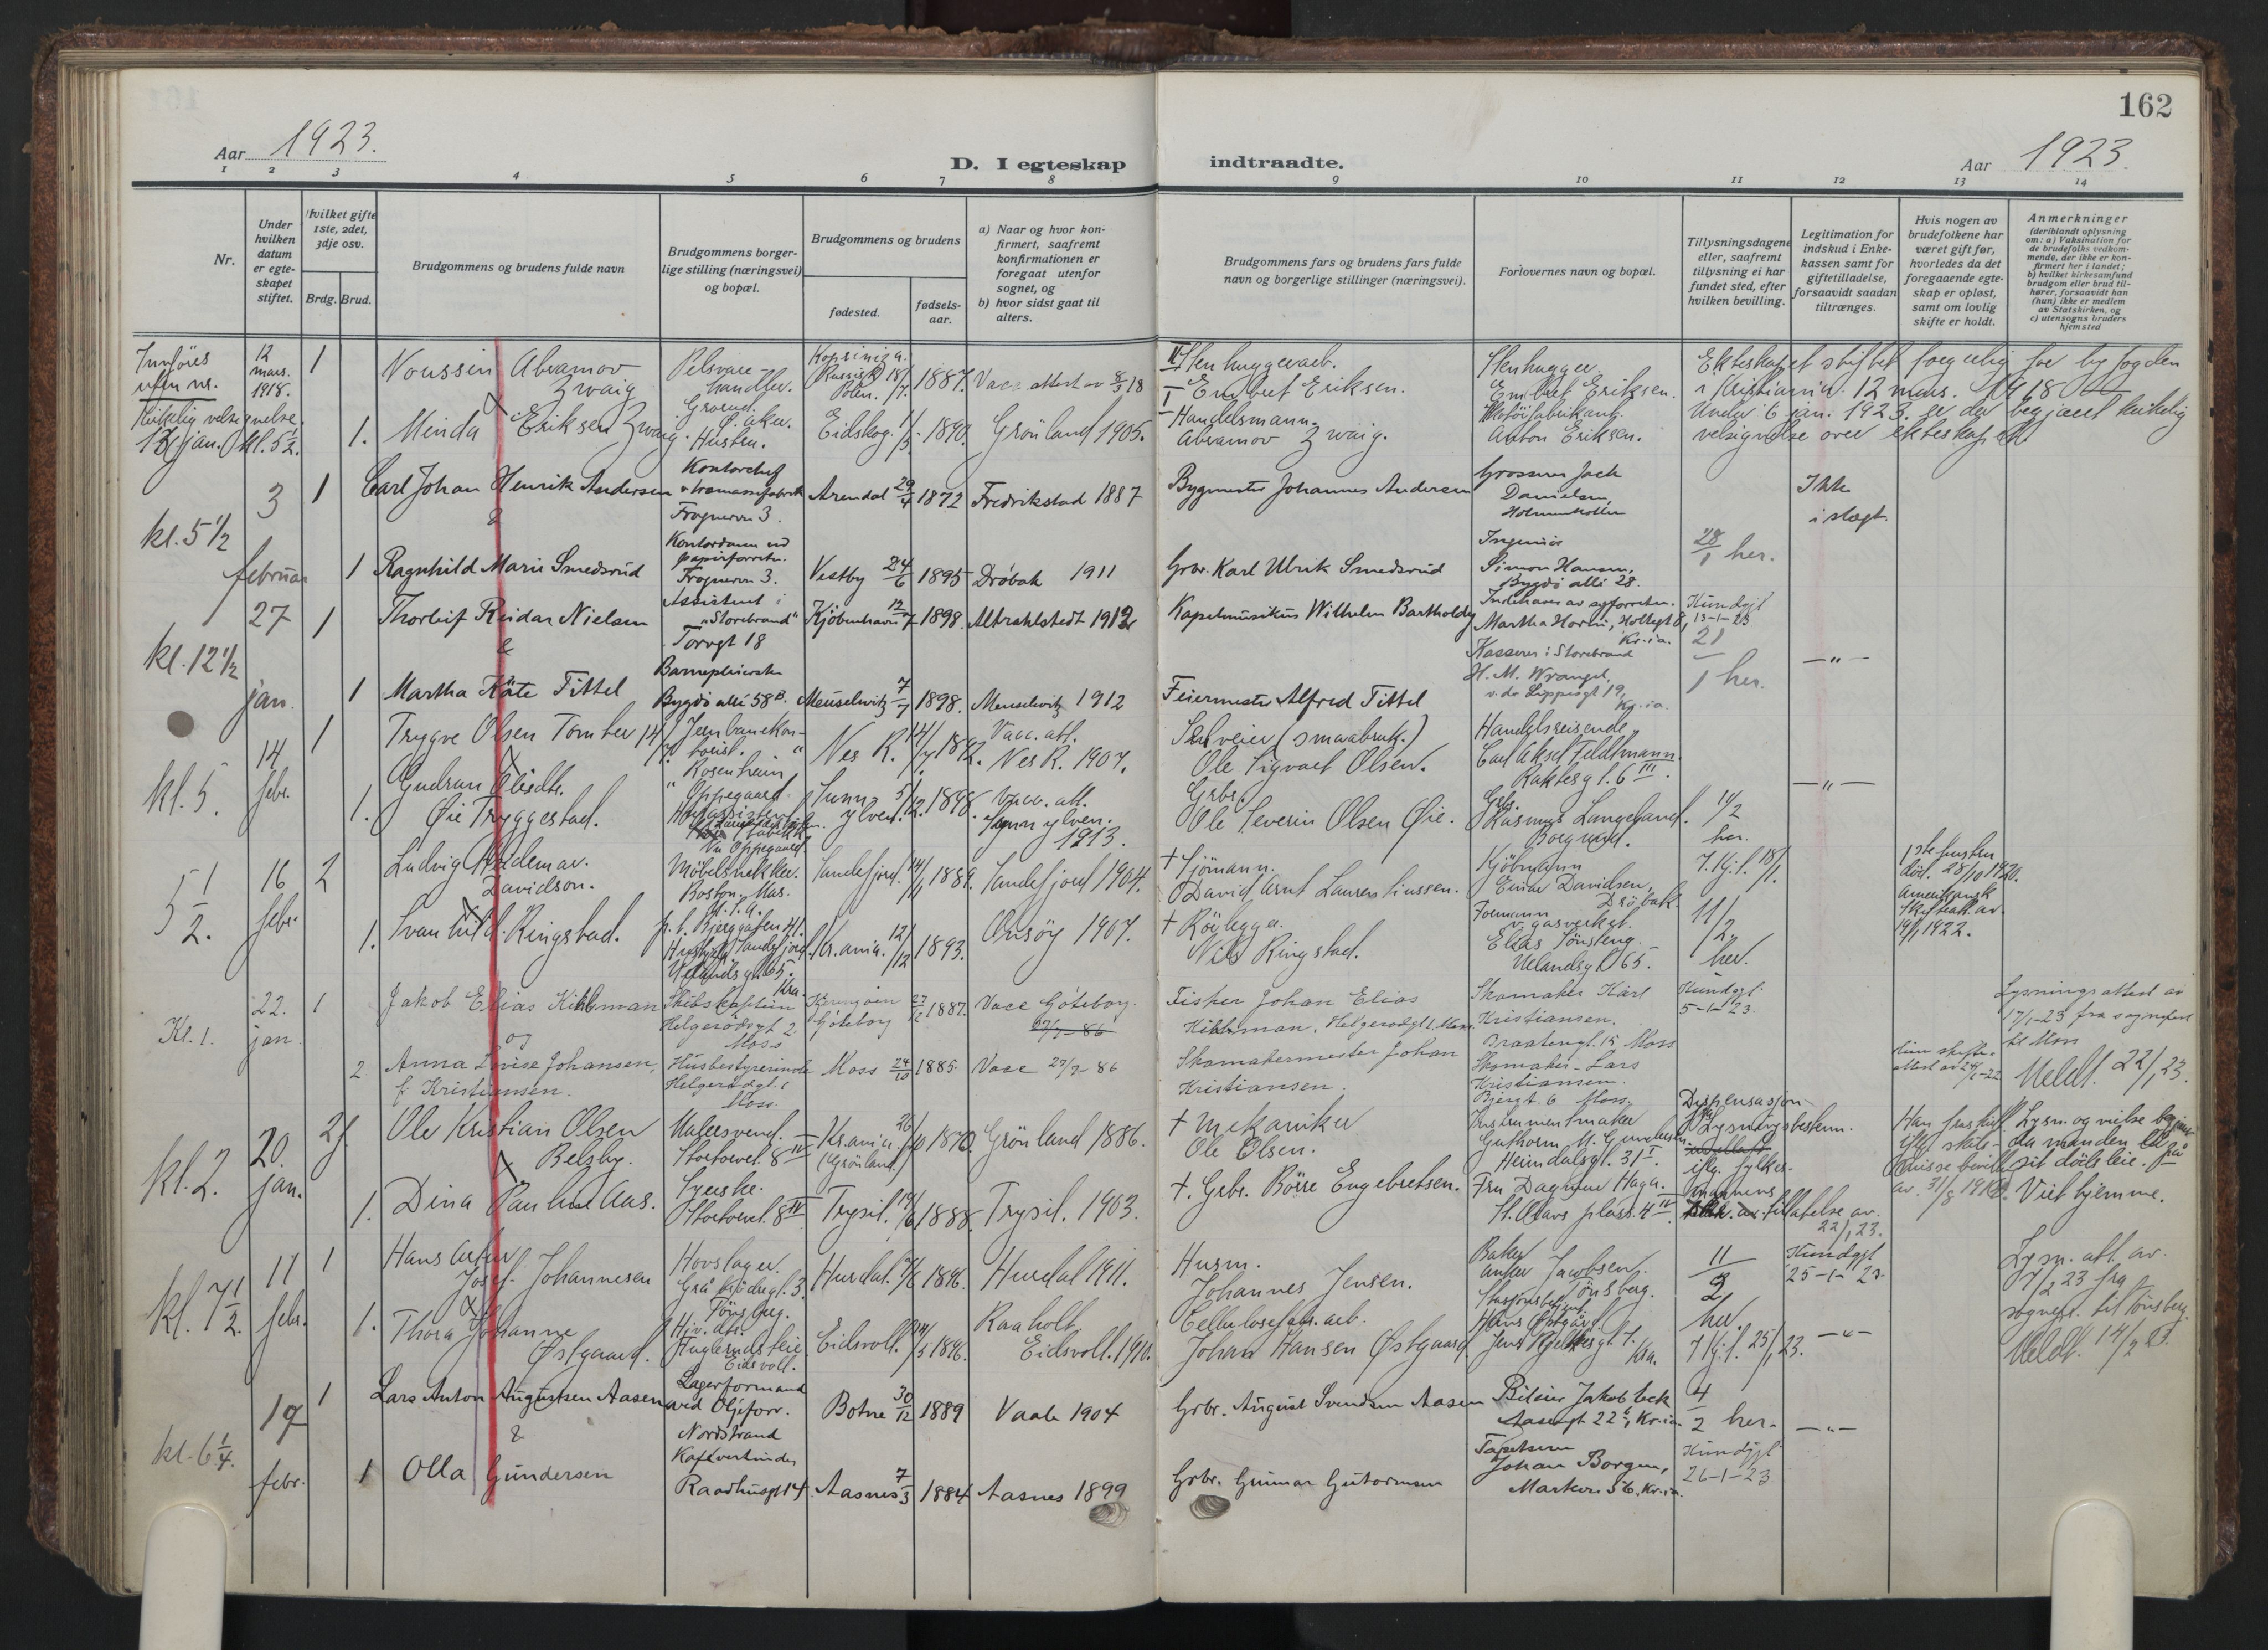 162
Aar 1923.
D. I egteskap indtraadte.
Aar 1923.
1 2 3 4 5 6 7 8 9 10 11 12 13 14
Nr.
Under hvilken datum er egteskapet stiftet.
Hvilket gifte 1ste, 2det, 3dje osv.
Brdg. Brud.
Brudgommens og brudens fulde navn
Brudgommens borgerlige stilling (næringsvei) og bopæl.
Brudgommens og brudens
fødested.
fødselsaar.
a) Naar og hvor konfirmert, saafremt konfirmationen er foregaat utenfor sognet, og
b) hvor sidst gaat til alters.
Brudgommens fars og brudens fars fulde navn og borgerlige stillinger (næringsvei).
Forlovernes navn og bopæl.
Tillysningsdagene eller, saafremt tillysning ei har fundet sted, efter hvilken bevilling.
Legitimation for indskud i Enkekassen samt for giftetilladelse, forsaavidt saadan tiltrænges.
Hvis nogen av brudefolkene har været gift før, hvorledes da det foregaaende egteskap er opløst, samt om lovlig skifte er holdt.
Anmerkninger
(deriblandt oplysning om: a) Vaksination for de brudefolks vedkommende, der ikke er konfirmert her i landet; b) hvilket kirkesamfund brudgom eller brud tilhører, forsaavidt han (hun) ikke er medlem av Statskirken, og c) utensogns bruders hjemsted
Innføres uten nr.
12 mars. 1918.
1
Noussin Abramov Zwaig
Pelsvarehandler.
Polen.
1887.
Vacc. attest av 8/3 18
II Stenhuggerarb.
Embret Eriksen.
Stenhugger
Embret Eriksen.
Ekteskapet stiftet borgerlig for byfogden
i Kristiania 12 mars. 1918
Under 6 jan. 1923 er der begjæret kirkelig
velsignelse over ekteskapet.
Kirkelig velsignelse
jan. kl. 5 1/2.
1.
Minda Eriksen Zwaig.
Ø. Aker.
Hustru.
Eidskog.
1890.
Grønland 1905.
I Handelsmann.
Abramov Zwaig.
Anton Eriksen.
3
1
Carl Johan Henrik Andersen
&
Kontorchef
Frognervn 3.
Arendal 29/4 1872
Fredrikstad 1887
Bygmester Johannes Andersen
Grosserer Jack Danielsen,
Holmenkollen
Ikke i slegt.
kl. 5 1/2
februar
1
Ragnhild Marie Smedsrud
Kontordame ved
papirforretn.
Frognervn 3.
Vestby 24/6 1895
Drøbak 1911
Grbr. Karl Ulrik Smedsrud
Ingeniør
Simon Hansen,
Bygdø alle 28.
28/1 her.
27
1
Thorleif Reidar Nielsen
&
Assistent i
"Storebrand"
Torvgt 18
Kjøbenhavn 12/7 1898.
Altrahlstedt 1912
Kapelmusikus Wilhelm Bartholdy
Indehaver av syforretn.
Martha Horni, Holtegt 8,
Kr.ia.
Kundgjt
13-1-23
21/1 her.
kl. 12 1/2
jan.
1
Martha Käte Tittel
Barnepleierske
Bygdø alle 58 B.
Meuselwitz 7/7 1898.
Meuselwitz 1912
Feiermester Alfred Tittel
Kasserer i Storebrand
H. M. Wrangel,
Kr.ia.
— " —
14 febr.
kl. 5.
1
Trygve Olsen Tomter
Jernbanekontorist.
Rosenheim
Oppegaard
Nes R. 14/7 1882.
Vacc. att.
Nes R. 1907.
Selveier (smaabruk.)
Ole Sigvart Olsen.
Handelsreisende
Carl Aksel Feldtmann.
— " —
1.
Gudrun Olisdtr.
Øie Tryggestad.
Sunnylven. 5/12. 1898.
Vacc. att.
Sunnylven.
1913.
Grbr.
Ole Severin Olsen Øie.
Rasmus Langeland.
Borgund.
11/2 her.
5 1/2.
16 febr.
2
Ludvig Waldemar.
Davidson.
Møbelsnekker.
Boston. Mas.
U.S.A.
Sandefjord. 14/11 1889.
Sandefjord 1904.
† Sjömann.
David Arnt Laurentiussen.
Kjöbmann
Einar Davidsen,
Drøbak.
7. Kj. f. 18/1.
1ste hustru
död. 28/10 1920.
Amerikansk
skifteatt. av
1922.
1.
Svanhild Ringstad.
Uelandsgt. 65.
Kr.ania. 12/12 1893.
Onsøy 1907.
† Rörlegger.
Nils Ringstad.
Formann
v. gasverket.
Elias Tönsteng.
Uelandsgt. 65.
11/2. her.
Kl. 1.
22. jan.
1
Jakob Elias Kihlman
og
Skibskaptein
Helgerødsgt 2.
Moss
Göteborg
27/12 1887.
Vacc Göteborg.
27/7-86
Fisker Johan Elias
Kihlman, Helgerødgt 1. Moss
Skomaker Karl
Kristiansen.
Braatengt. 15 Moss
Kundgjt.
5-1-23.
Lysningsattest av
17/1-23 fra sognepr
til Moss
Meldt. 22/1 23.
2
Anna Lovise Johansen,
f. Kristiansen.
Husbestyrerinde
Helgerødgt.
Moss.
Moss 24/10 1885.
Vacc 27/7-86
Skomakermester Johan
Kristiansen.
Skomaker Lars
Kristiansen.
Bjergt. 6 Moss.
kl. 2.
20. jan.
2
Ole Kristian Olsen
Belsby.
Malersvend.
Stortorvet. 8 IV
Kr.ania.
(Grönland)
1870.
Grönland 1886.
† Mekaniker
Ole Olsen.
Instrumentmaker
Guthorm
Heimdalsgt. 31 I.
Dispensasjon
fra Lysningsbestem.
iflg. fylkesmannens
tillatelse av
22/1 23.
Han fraskilt
av. 31/8
Lysn. og vielse
da manden lå på
sit dödsleie.
Viet hjemme.
1.
Dina Pauline Aas.
Syerske.
Stortorvet. 8 IV
Trysil. 19/6 1888.
Trysil. 1903.
†. Grbr. Börre Engebretsen.
Fru Dagmar Haga.
St. Olavs plass. 4 IV.
kl. 7 1/2.
11 febr.
1
Hans Arthur
Josef Johannesen
Hovslager.
Tönsberg.
Hurdal. 1896.
Hurdal 1911.
Husm.
Johannes Jensen.
Baker
Jacobsen.
Tönsberg.
11/2 her.
Kundgjt
25-1-23.
Lysn. att. av
7/2 23 fra
sognepr. til Tönsberg
Meldt. 14/2 23.
1.
Thora Johanne
Østgaard.
Hjv. dtr.
Eidsvoll.
Eidsvoll. 1896.
Raaholt.
Eidsvoll. 1910.
Cellulosefabr. arb.
Johan Hansen Østgaard.
Stasjonsbetjent.
Hans Østgård
7 Kj. f. 25/1 23.
— " —
17
1
Lars Anton Augustsen Aasen
&
Lagerformand
ved Oljeforr.
Nordstrand
Botne 30/12 1889
Vaale 1904
Grbr. August Svendsen Aasen
Jakob Eek
Aasengt 22, Kr.ia
4/2 her.
— " —
kl. 6 1/4.
febr.
1
Olla Gundersen
Kafévertinde
Raadhusgt 14.
Aasnes 7/3 1884
Aasnes 1899
Grbr. Gunnar Gutormsen
Tapetserer
Johan Borgen,
Markvn 56, Kr.ia.
Kundgjt
26-1-23